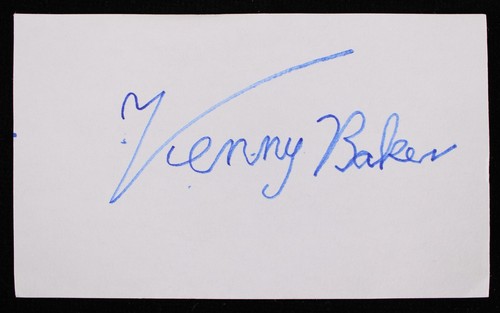 Kenny Baker